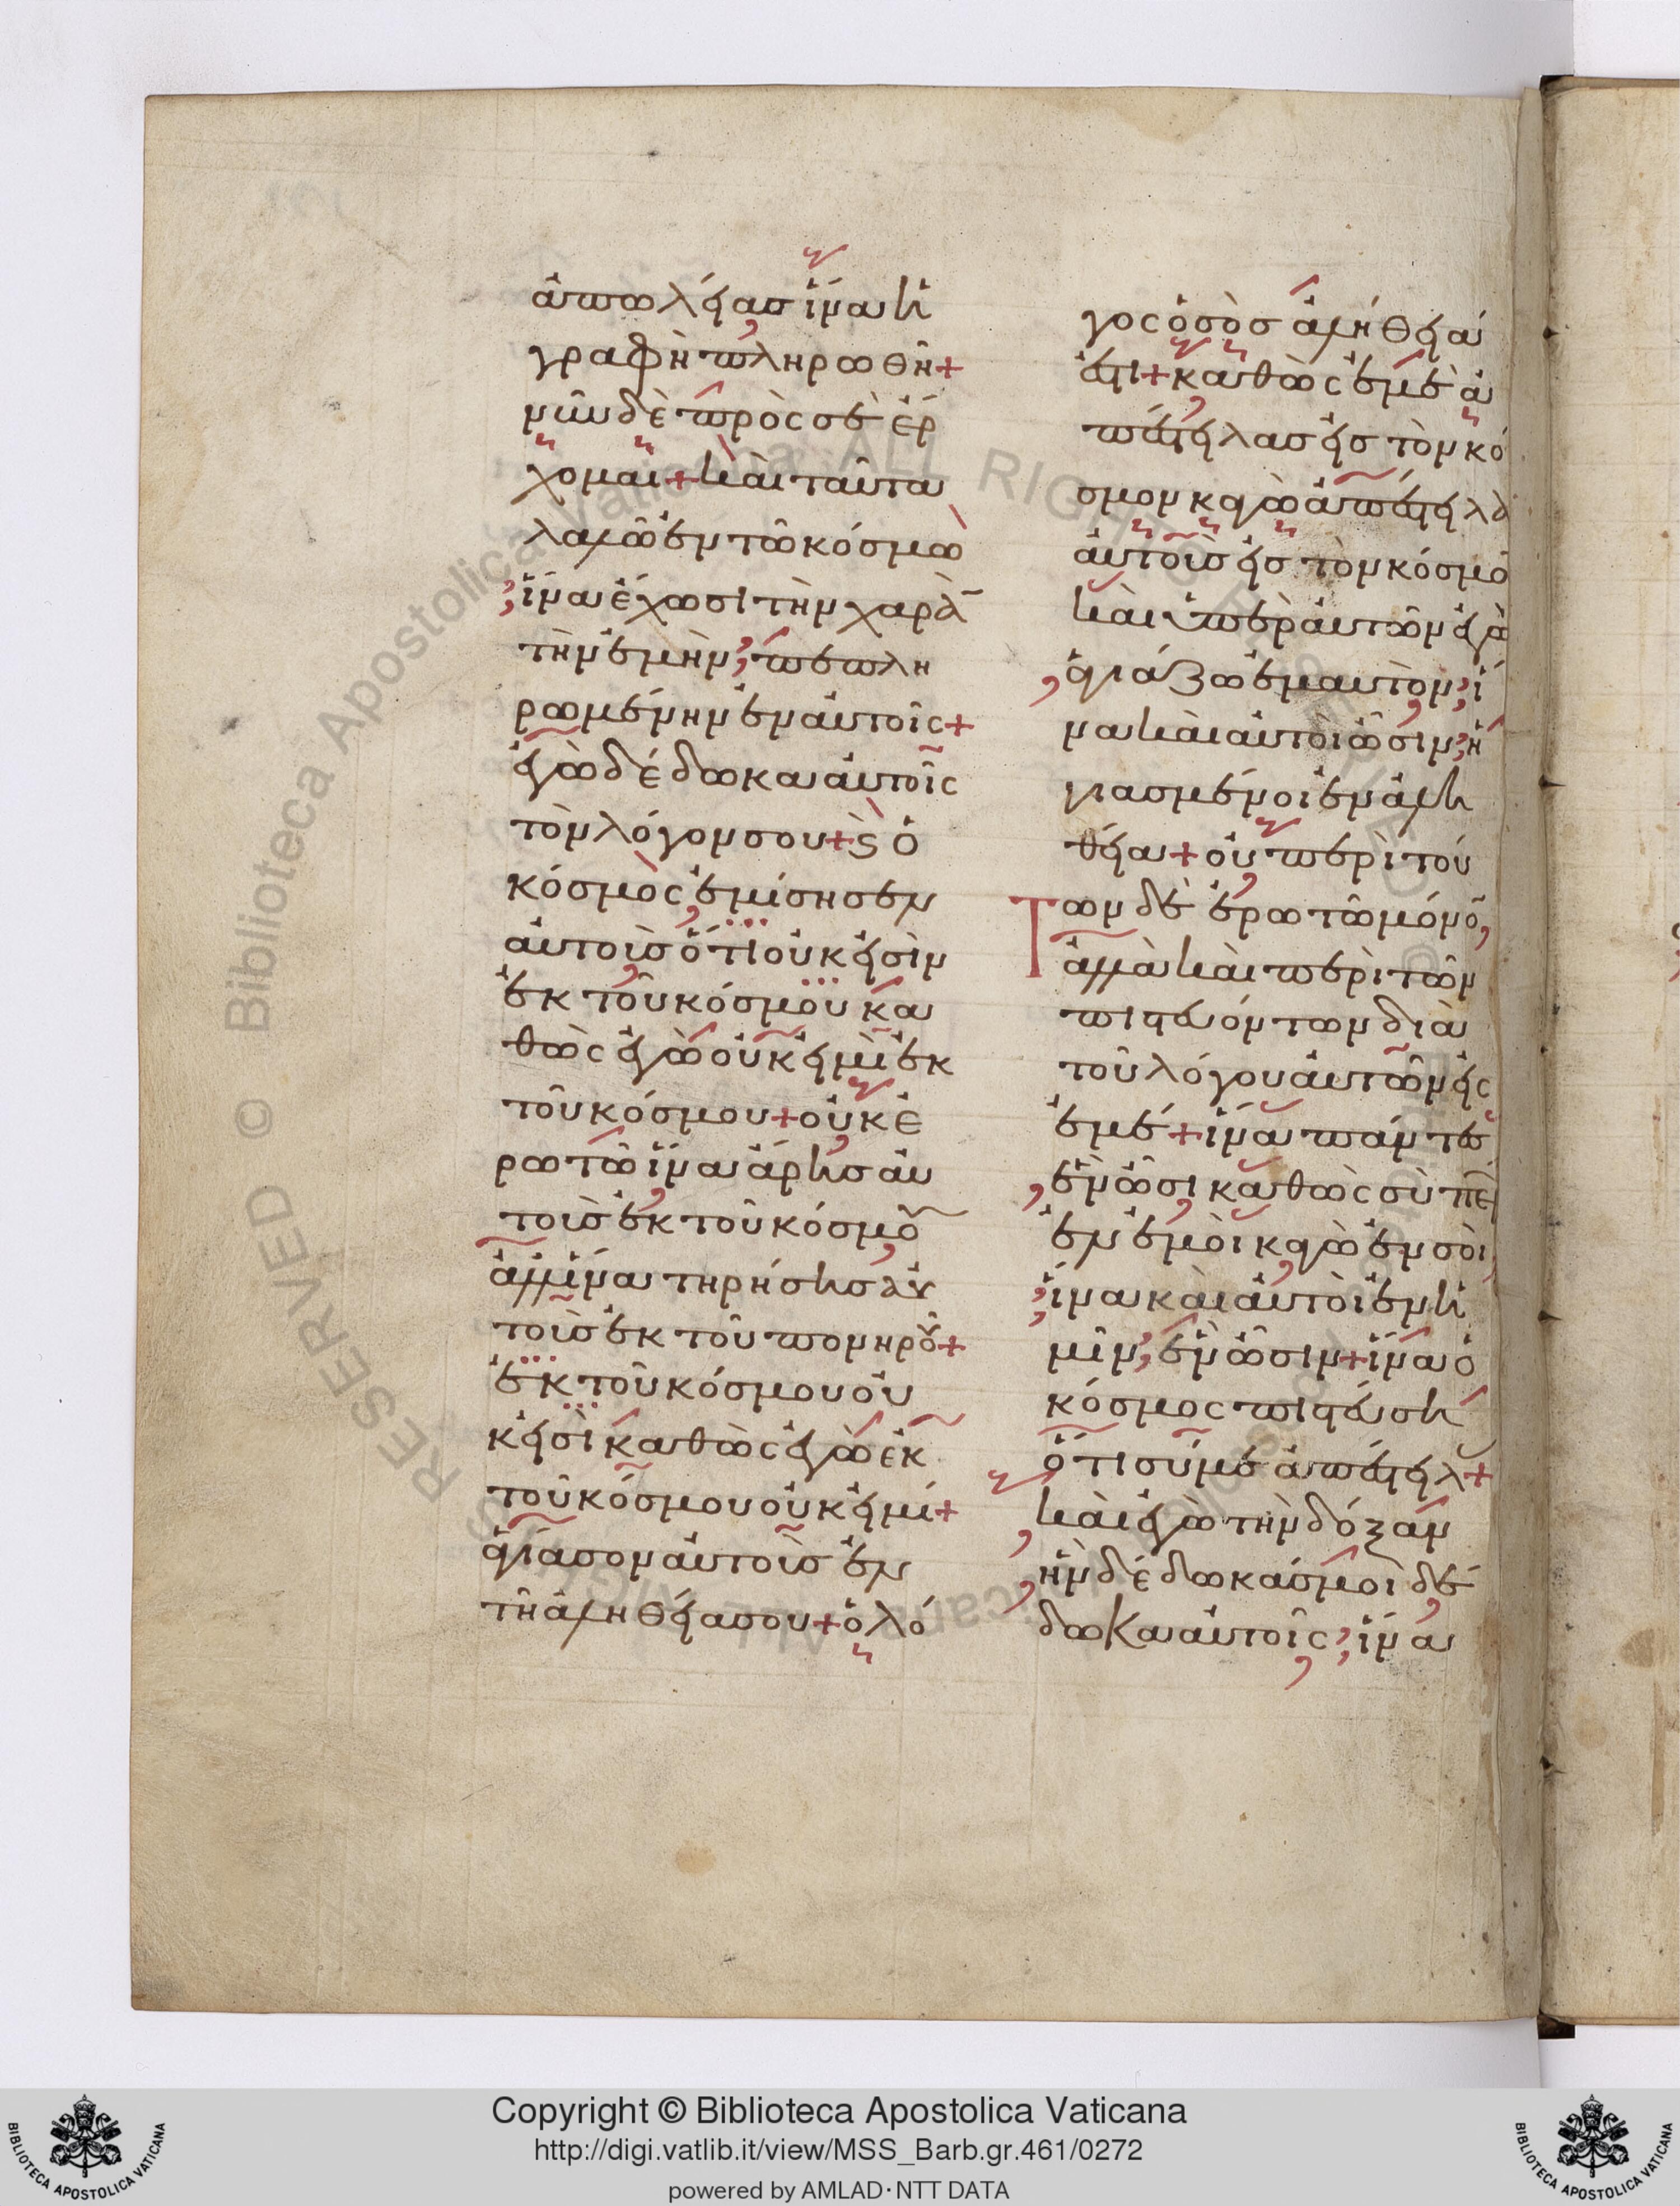 ἀπωλείασ ἵνα ἡ
γραφὴ πληρωθῆ+
νῦν δὲ πρὸς σὲ ἔρ
χομαι+ καὶ ταῦτα
λαλῶ ἐν τῶ κόσμω
ἵνα ἔχωσι τὴν χαρὰ̄
τὴν ἐμὴν, πεπλη
ρωμένην ἐν αὐτοῖς+
ἐγὼ δέδωκα αὐτοῖς
τὸν λόγον σου+ ϛ ὁ
κόσμος ἐμίσησεν
αὐτοὺσ ὅτι οὐκ εἰσὶν
ἐκ τοῦ κόσμου κα
θὼς ἐγὼ οὐκ εἰμὶ ἐκ
τοῦ κόσμου+ οὐκ ἐ
ρωτῶ ἵνα ἄρησ αὐ
τοὺσ ἐκ τοῦ κόσμου
ἀλλ ἵνα τηρήσησ αὐ
τοὺσ ἐκ τοῦ πονηροῦ+
ἐκ τοῦ κόσμου οὐ
κ εἰσὶ καθὼς ἐγὼ ἐκ
τοῦ κόσμου οὐκ εἰμί+
ἁγίασον αὐτοὺσ ἐν
τῆ ἀληθεία σου+ ὁ λό
γος ὁ σὸσ ἀλήθειά
ἐστι+ καθὼς ἐμὲ ἀ
πέστειλασ εἰσ τὸν κό
σμον κἀγὼ ἀπέστειλα
αὐτοὺσ εἰσ τὸν κόσμο
καὶ ὑπὲρ αὐτῶν ἐγὼ
ἁγιάζω ἐμαυτὸν, ἵ
να καὶ αὐτοὶ ὦσιν, ἡ
γιασμένοι ἐν ἀλη
θεία+ οὐ περὶ τού
Των δὲ ἐρωτῶ μόνο,
ἀλλὰ καὶ περὶ τῶν
πιστευόντων διὰ
τοῦ λόγου αὐτῶν εἰς
ἐμέ+ ἵνα πάντε
ἓν ὦσι καθὼς σὺ περ
ἐν ἐμοὶ κἀγὼ ἐν σοὶ
ἵνα καὶ αὐτοὶ ἐν ἡ
μῖν, ἓν ὦσιν+ ἵνα ὁ
κόσμος πιστεύση
ὅτι σύ με ἀπέστειλ+
καὶ ἐγὼ τὴν δόξαν
ἣν δέδωκάσ μοι δέ
δωκα αὐτοῖς, ἵνα
Copyright © Biblioteca Apostolica Vaticana
http://digi.vatlib.it/view/MSS_Barb.gr.461/0272
powered by AMLAD·NTT DATA
BIBLIOTECA APOSTOLICA VATICANA
BIBLIOTECA APOSTOLICA VATICANA